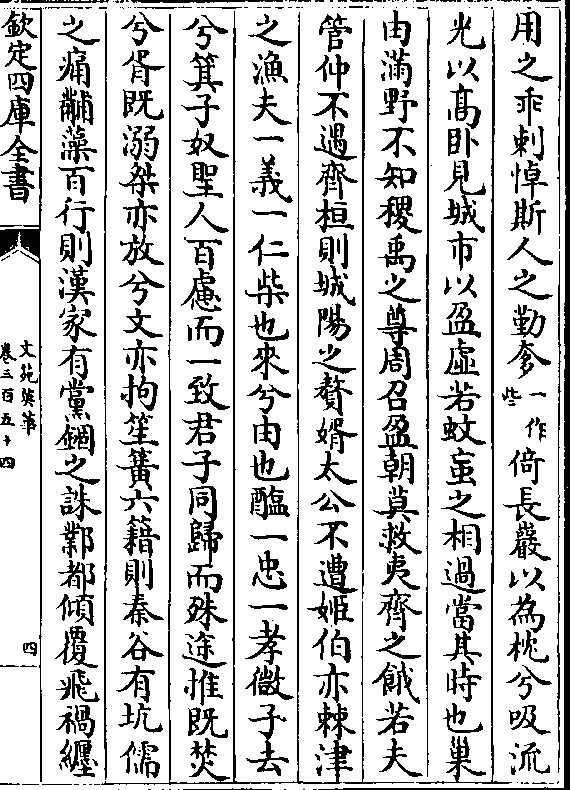 用之乖剌悼斯人之勤
些一作
倚長巖以為枕兮吸流
光以髙卧見城市以盈虛若蚊䖟之相過當其時也巢
由滿野不知稷禹之尊周召盈朝莫救夷齊之餓若夫
管仲不遇齊桓則城陽之贅婿太公不遭姬伯亦棘津
之漁夫一義一仁柴也來兮由也醢一忠一孝微子去
兮箕子奴聖人百慮而一致君子同歸而殊途惟既焚
兮胥既溺桀亦放兮文亦拘笙簧六籍則秦谷有坑儒
之痛黼藻百行則漢家有黨錮之誅鄴都傾覆飛禍纒
欽定四庫全書
文苑英華
卷三百五十四
四